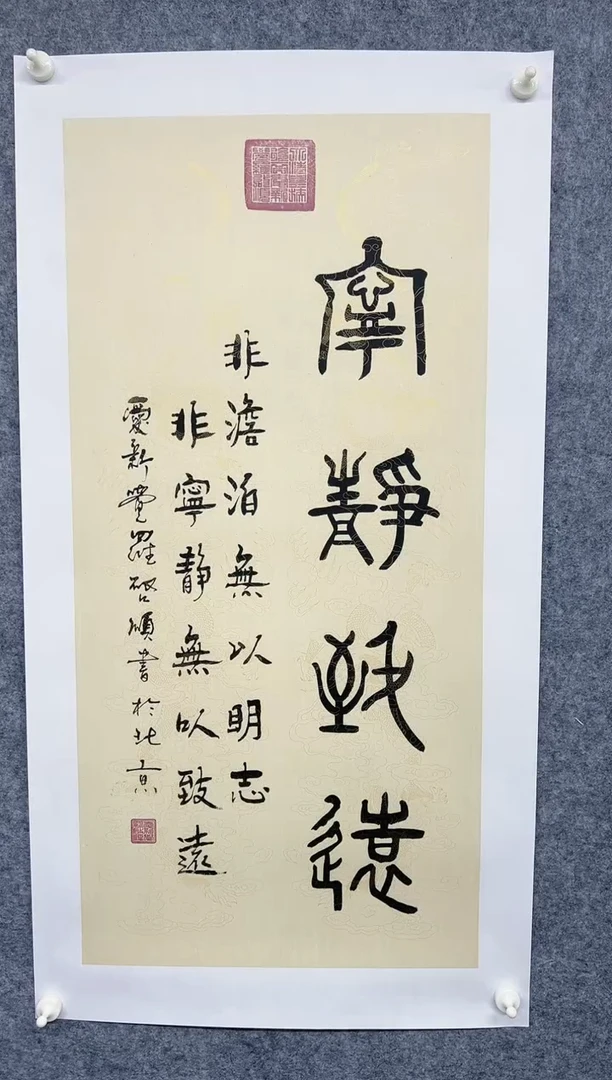 寧靜致遠
非澹泊無以明志
非寧靜無以致遠
愛新覺羅啓頎書於北京